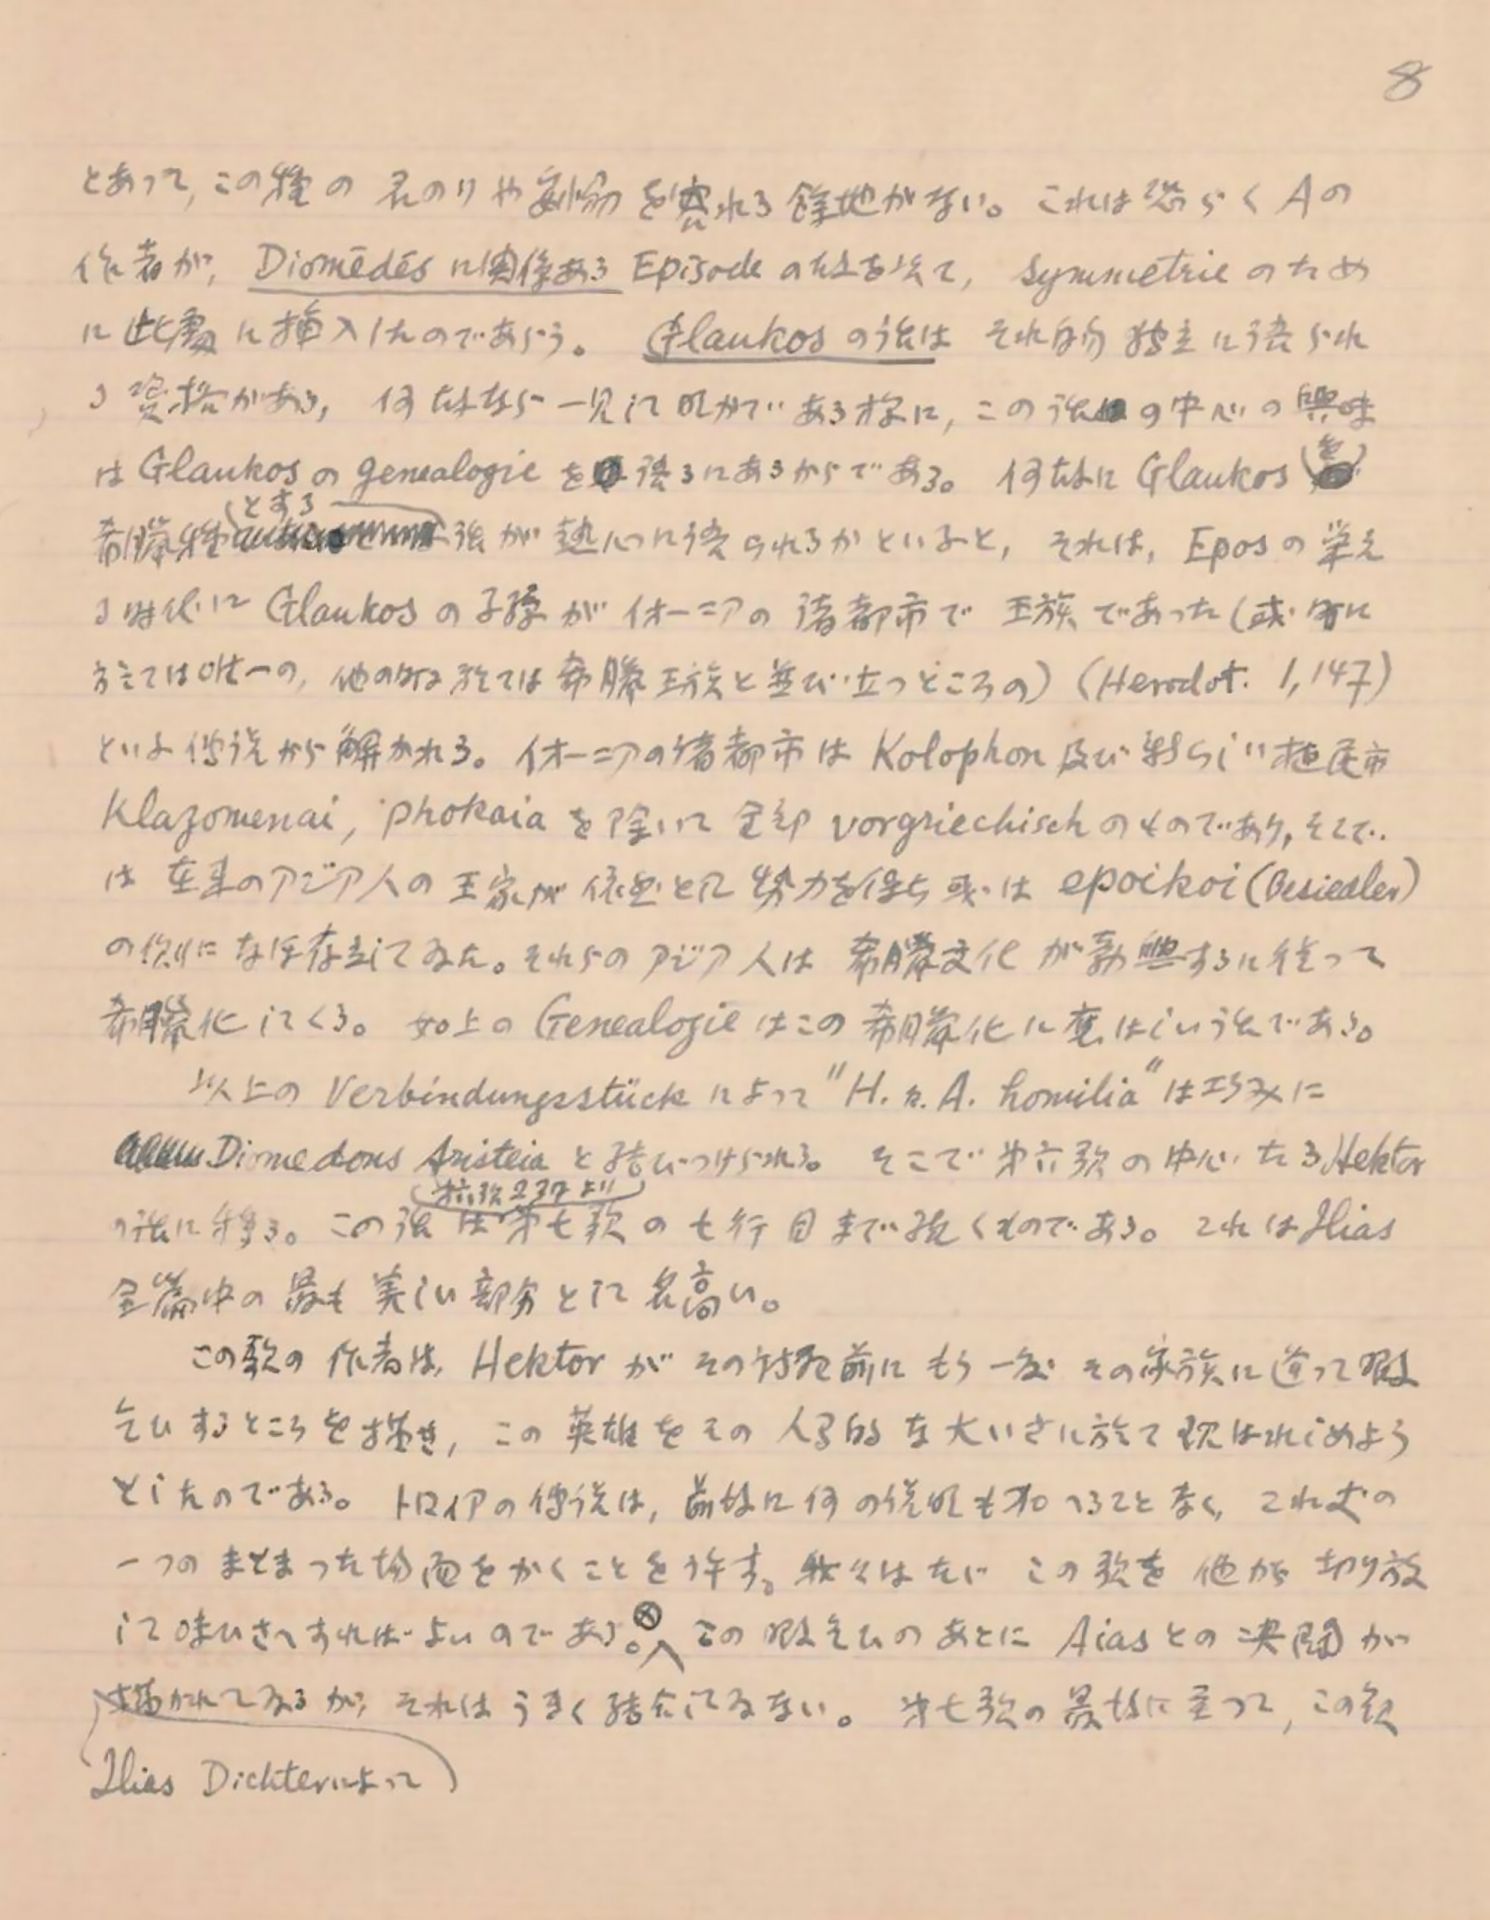 8
とあって、この種の名のりや を容れる餘地がない。これは恐らくAの
作者が、Diomēdēsに関係あるEpisodeの な て、symmetrieのため
に此處に挿入したのであらう。Glaukosの話はそれ自身独立に語られ
る資格がある、何故なら一見して明かである様に、この話の中心の興味
はGlaukosのgenealogieを語るにあるからである。何故にGlaukosを
とする
希臘種 話が熱心に語られるかといふと、それは、Eposの栄え
る時代にGlaukosの子孫がイオーニアの諸都市で王族であった(或町に
於ては唯一の、他の町に於ては希臘王族と並び立つところの)(Herodot. 1,147)
といふ傳説から解かれる。イオーニアの諸都市はKolophon及び新らしい植民市
Klazomenai, Phokaiaを除いて全部vorgriechischのものであり、そこで
は在来のアジア人の王家が依然として勢力を保ち或はepoikoi(Besiedler)
の側になほ存立してゐた。それらのアジア人は希臘文化が勃興するに従って
希臘化してくる。如上のGenealogieはこの希臘化に應はしい話である。
以上のVerbindungsstückによって"H. u. A. homilia"は巧みに
Diomedous Aristeiaと結びつけられる。そこで第六歌の中心たるHektor
(第六歌237より)
の話に移る。この話は第七歌の七行目まで続くものである。これはIlias
全篇中の最も美しい部分として名高い。
この歌の作者は、Hektorがその討死前にもう一度その家族に逢って暇
乞ひするところを描き、この英雄をその人間的な大いさに於て現はれしめよう
としたのである。トロイアの傳説は、前以に何の説明も加へることなく、これ丈の
一つのまとまった場面をかくことを許す。我々はただこの歌を他から切り放
して味ひさへすればよいのである。⊗この暇乞ひのあとにAiasとの決闘が
描かれてゐるが、それはうまく結合してゐない。第七歌の最後に至って、この歌
Ilias Dichterによって